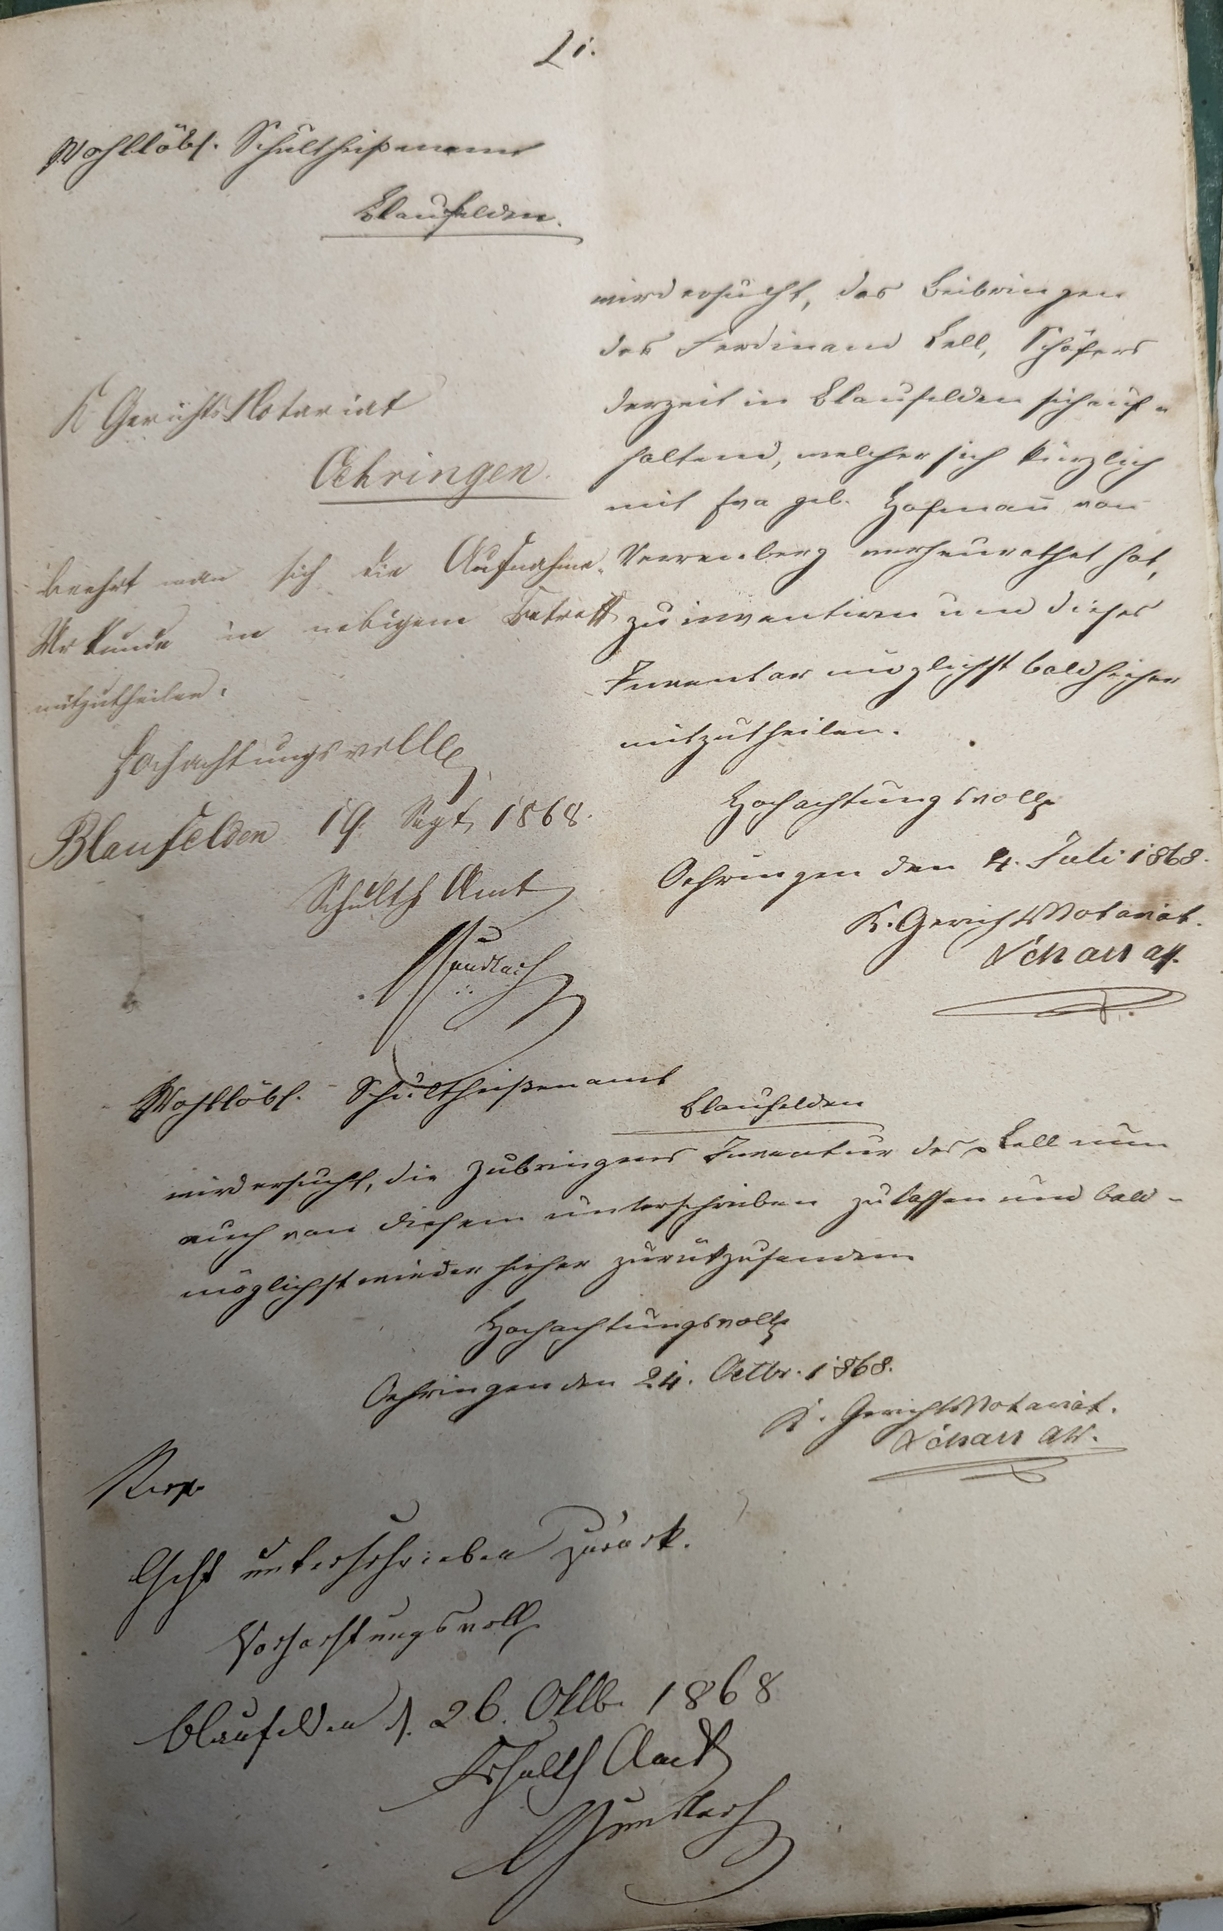 21.
Wohllöbl. Schultheißenamt
Blaufelden.
wird ersucht, das Beibringen
des Ferdinand Lell, Schäfers
derzeit in Blaufelden sich auf-
haltend, welcher sich kürzlich
mit Eva geb. Hofmann von
Verrenberg verheurathet hat,
zu inventiren und dieses
Inventar möglichst bald hieher
mitzutheilen.
Hochachtungsvollst
Oehringen den 4. Juli 1868.
K. GerichtsNotariat.
K GerichtsNotariat
Oehringen.
beehrt man sich die Aufnahme-
Urkunde in nebigem Betreff
mitzutheilen.
Hochachtungsvollst
Blaufelden 19. Sept. 1868.
Schulth Amt
Wohllöbl. Schultheißenamt
Blaufelden
wird ersucht, die Zubringens Inventur des Lell nun
auch von diesem unterschreiben zu lassen und bald-
möglichst wieder hieher zurükzusenden
Hochachtungsvollst
Oehringen den 24. Octbr. 1868.
K. GerichtsNotariat.
Geht unterschrieben zurück.
Hochachtungsvoll
Blaufelden d. 26. Oktb. 1868
Schulth Amt